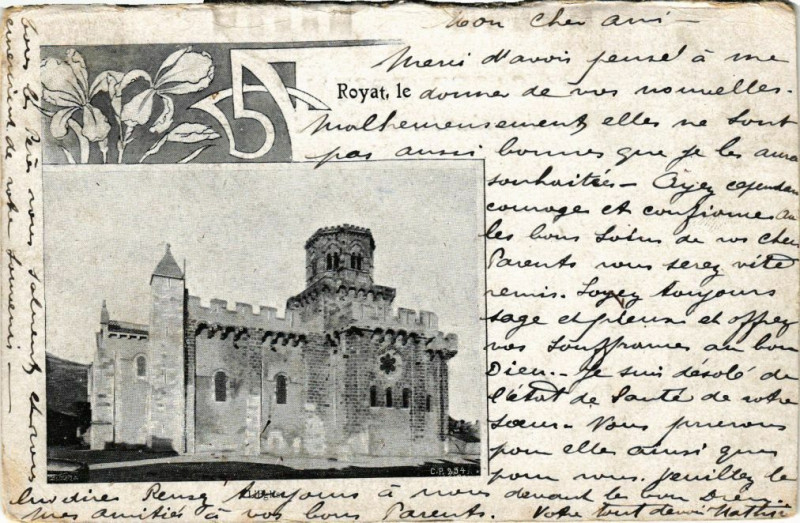 Mon cher ami —
Merci d'avoir pensé à me
Royat, le donner de vos nouvelles.
Malheureusement elles ne sont
pas aussi bonnes que je les aurai
souhaitées — Ayez cependant
courage et confiance
les bons soins de vos chers
Parents vous serez vite
remis. Soyez toujours
sage et pieux et offrez
vos souffrances au bon
Dieu. — Je suis désolé de
l'état de Santé de votre
Sœur — Nous prierons
pour elle ainsi que
pour vous. Veuillez le
leur dire Pensez toujours à nous devant le bon Dieu
mes amitiés à vos bons Parents. Votre tout dévoué
Tous les Pères vous saluent
de votre souvenir —
C.P. 354.